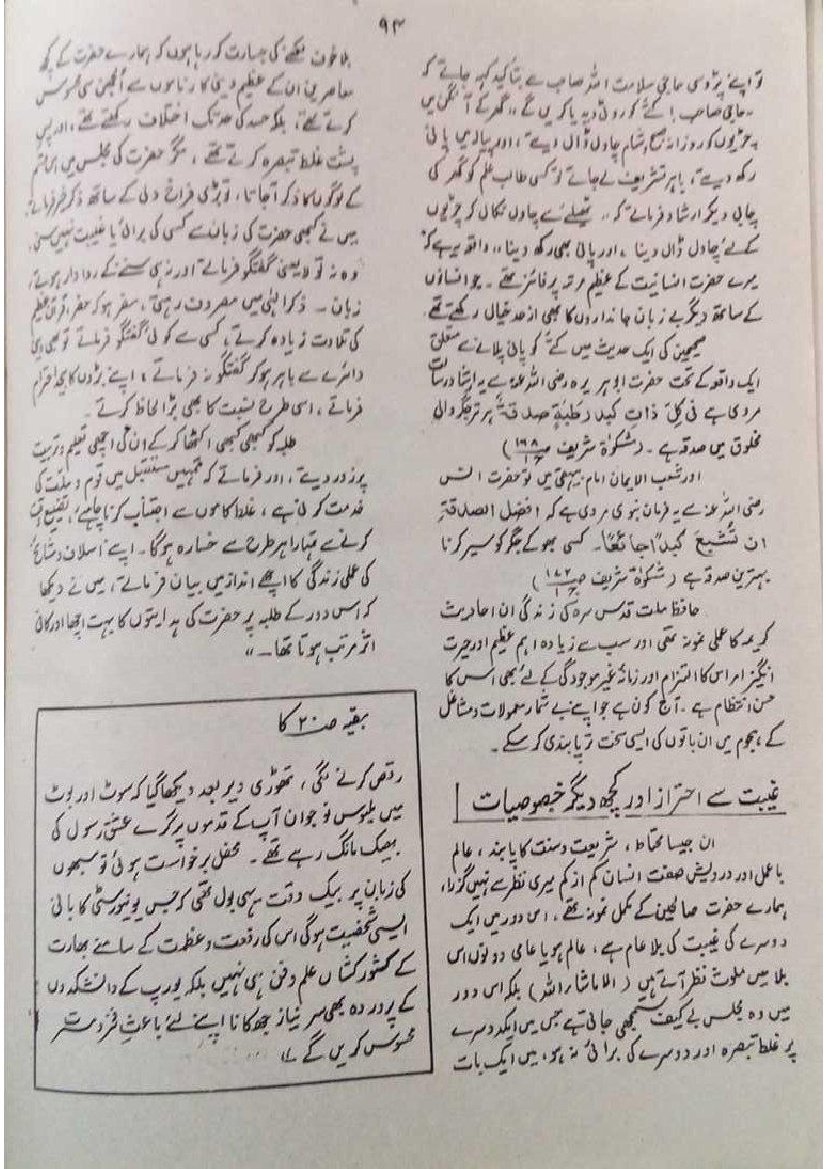 ۹۳
تو اپنے پڑوسی حاجی سلامت اللہ صاحب سے بتاکید کہہ جاتے کہ
۔حاجی صاحب! کتے کو روٹی دیدیا کریں گے،، گھر کے آنگن میں
چڑیوں کو روزانہ صبح و شام چاول ڈال دیتے، اور پیالہ میں پانی
رکھ دیتے، باہر تشریف لے جاتے تو کسی طالب علم کو گھر کی
چابی دیکر ارشاد فرماتے کہ ،، تھیلے سے چاول نکال کر چڑیوں
کے لئے چاول ڈال دینا، اور پانی بھی رکھ دینا،، واقعہ یہ ہے کہ
میرے حضرت انسانیت کے عظیم مرتبہ پر فائز تھے۔ جو انسانوں
کے ساتھ دیگر بے زبان جانداروں کا بھی از حد خیال رکھتے تھے۔
صحیحین کی ایک حدیث میں کتے کو پانی پلانے سے متعلق
ایک واقعہ کے تحت حضرت ابو ہریرہ رضی اللہ عنہ سے یہ ارشاد رسالت
مروی ہے فی کل ذات کبد رطبۃ صدقۃ ہر تر جگر والی
مخلوق میں صدقہ ہے۔ (مشکوٰۃ شریف ص۱۶۸ ج۱)
اور شعب الایمان امام بیہقی میں تو حضرت انس
رضی اللہ عنہ سے یہ فرمان نبوی مروی ہے کہ افضل الصدقۃ
ان تشبع کبداً جائعًا۔ کسی بھوکے جگر کو سیر کرنا
بہترین صدقہ ہے (مشکوٰۃ شریف ص۱۷۲ ج۱)
حافظ ملت قدس سرہ کی زندگی ان احادیث
کریمہ کا عملی نمونہ تھی اور سب سے زیادہ اہم عظیم اور حیرت
انگیز امر اس کا التزام اور زمانۂ غیر موجودگی کے لئے بھی اس کا
حسن انتظام ہے۔ آج کون ہے جو اپنے بے شمار معمولات و مشاغل
کے ہجوم میں ان باتوں کی ایسی سخت تر پابندی کر سکے۔
غیبت سے احتراز اور کچھ دیگر خصوصیات
ان جیسا محتاط، شریعت و سنت کا پابند، عالم
باعمل اور درویش صفت انسان کم از کم میری نظر سے نہیں گزرا،
ہمارے حضرت صالحین کے مکمل نمونہ تھے۔ اس دور میں ایک
دوسرے کی غیبت کی بلا عام ہے، عالم ہو یا عامی دونوں اس
بلا میں ملوث نظر آتے ہیں (الا ماشاء اللہ) بلکہ اس دور
میں وہ مجلس بے کیف سمجھی جاتی ہے جس میں ایک دوسرے
پر غلط تبصرہ اور دوسرے کی برائی نہ ہو، میں ایک بات
بلا خوف لکھنے کی جسارت کر رہا ہوں کہ ہمارے حضرت کے کچھ
معاصرین ان کے عظیم دینی کارناموں سے الجھن سی محسوس
کرتے تھے، بلکہ حسد کی حد تک اختلاف رکھتے تھے، اور پس
پشت غلط تبصرہ کرتے تھے، مگر حضرت کی مجلس میں
کے لوگوں کا ذکر آجاتا، تو بڑی فراخ دلی کے ساتھ ذکر خیر فرماتے
میں نے کبھی حضرت کی زبان سے کسی کی برائی یا غیبت نہیں سنی،
وہ نہ تو لایعنی گفتگو فرماتے اور نہ ہی سننے کے روادار ہوتے،
زبان۔ ذکر الٰہی میں مصروف رہتی، سفر ہو کہ حضر، قرآن عظیم
کی تلاوت زیادہ کرتے، کسی سے کوئی گفتگو فرماتے تو بھی دینی
دائرے سے باہر ہو کر گفتگو نہ فرماتے، اپنے بڑوں کا بیحد احترام
فرماتے، اسی طرح نسبت کا بھی بڑا لحاظ کرتے۔
طلبہ کو کبھی کبھی اکٹھا کر کے ان کی اچھی تعلیم و تربیت
پر زور دیتے، اور فرماتے کہ تمہیں مستقبل میں قوم و ملت کی
خدمت کرنی ہے، غلط کاموں سے اجتناب کرنا چاہیے، تضییع وقت
کرنے سے تمہارا ہر طرح سے خسارہ ہوگا۔ اپنے اسلاف و مشائخ
کی عملی زندگی کا اچھے انداز میں بیان فرماتے، میں نے دیکھا
کہ اس دور کے طلبہ پر حضرت کی ہدایتوں کا بہت اچھا اور کافی
اثر مرتب ہوتا تھا۔،،
بقیہ ص۲۰ کا
رقص کرنے لگی، تھوڑی دیر بعد دیکھا گیا کہ سوٹ اور بوٹ
میں ملبوس نوجوان آپ کے قدموں پر گرے عشق رسول کی
بھیک مانگ رہے تھے۔ محفل برخواست ہوئی تو سبھوں
کی زبان پر بیک وقت یہی بول تھی کہ جس یونیورسٹی کا بانی
ایسی شخصیت ہوگی اس کی رفعت و عظمت کے سامنے بھارت
کے کشور کشاں علم و فن ہی نہیں بلکہ یورپ کے دانشکدوں
کے پروردہ بھی سر نیاز جھکانا اپنے لئے باعث فخر و مسرت
محسوس کریں گے۔،،